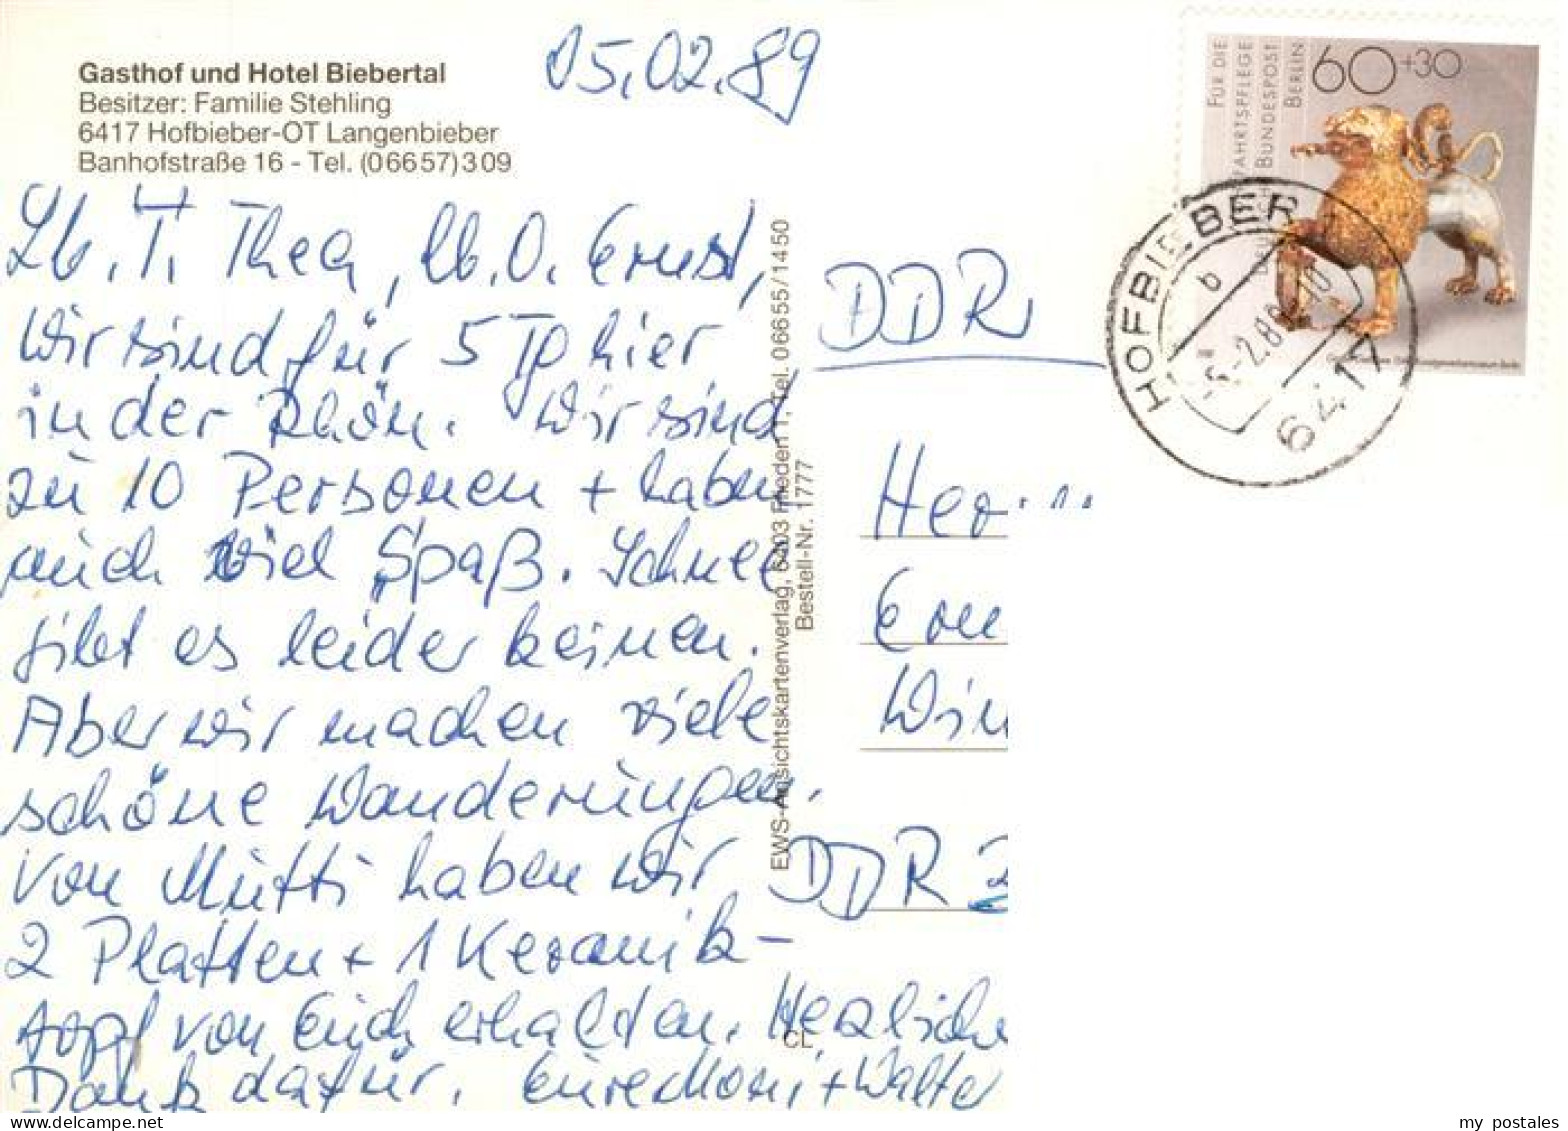 Gasthof und Hotel Biebertal
Besitzer: Familie Stehling
6417 Hofbieber-OT Langenbieber
Banhofstraße 16 - Tel. (06657)309
05.02.89
Lb. T. Thea, lb. O. Ernst,
Wir sind für 5 Tg hier
in der Rhön. Wir sind
zu 10 Personen + haben
auch viel Spaß. Schnee
gibt es leider keinen.
Aber wir machen viele
schöne Wanderungen.
Von Mutti haben wir
2 Platten + 1 Keramik-
topf von Euch erhalten. Herzlichen
Dank dafür. Eure Moni + Walter
EWS-Ansichtskartenverlag, 6403 Flieden 1, Tel. 06655/1450
Bestell-Nr. 1777
CL
FÜR DIE
BUNDESPOST
BERLIN
60+30
HOFBIEBER
b
6417
DDR
Her
Ern
Win
DDR
my postales